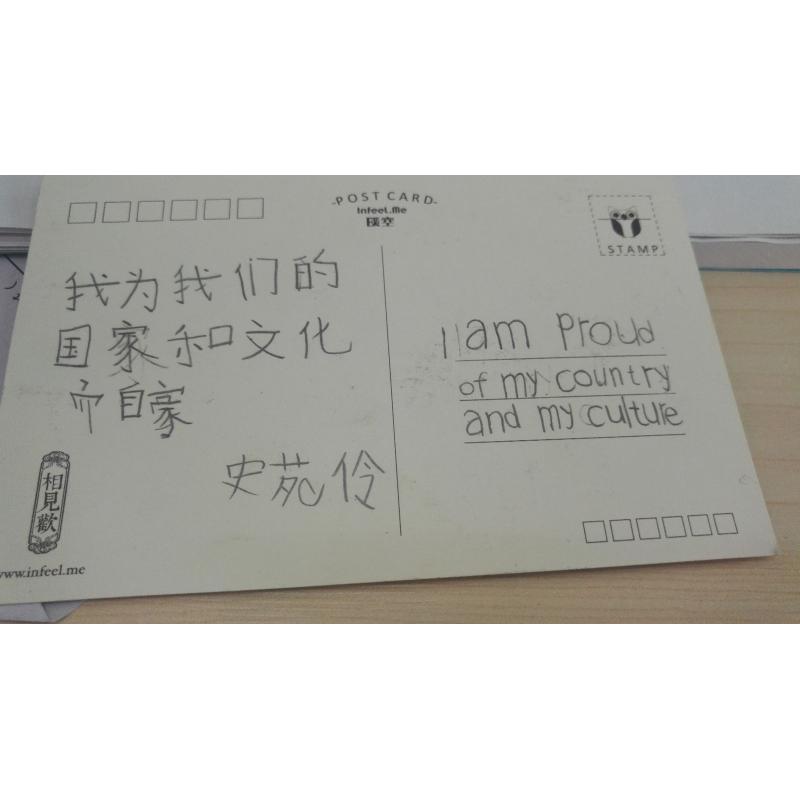 -POST CARD-
Infeel.Me
STAMP
我为我们的
国家和文化
而自豪
史苑伶
I am Proud
of my country
and my culture
相見歡
www.infeel.me